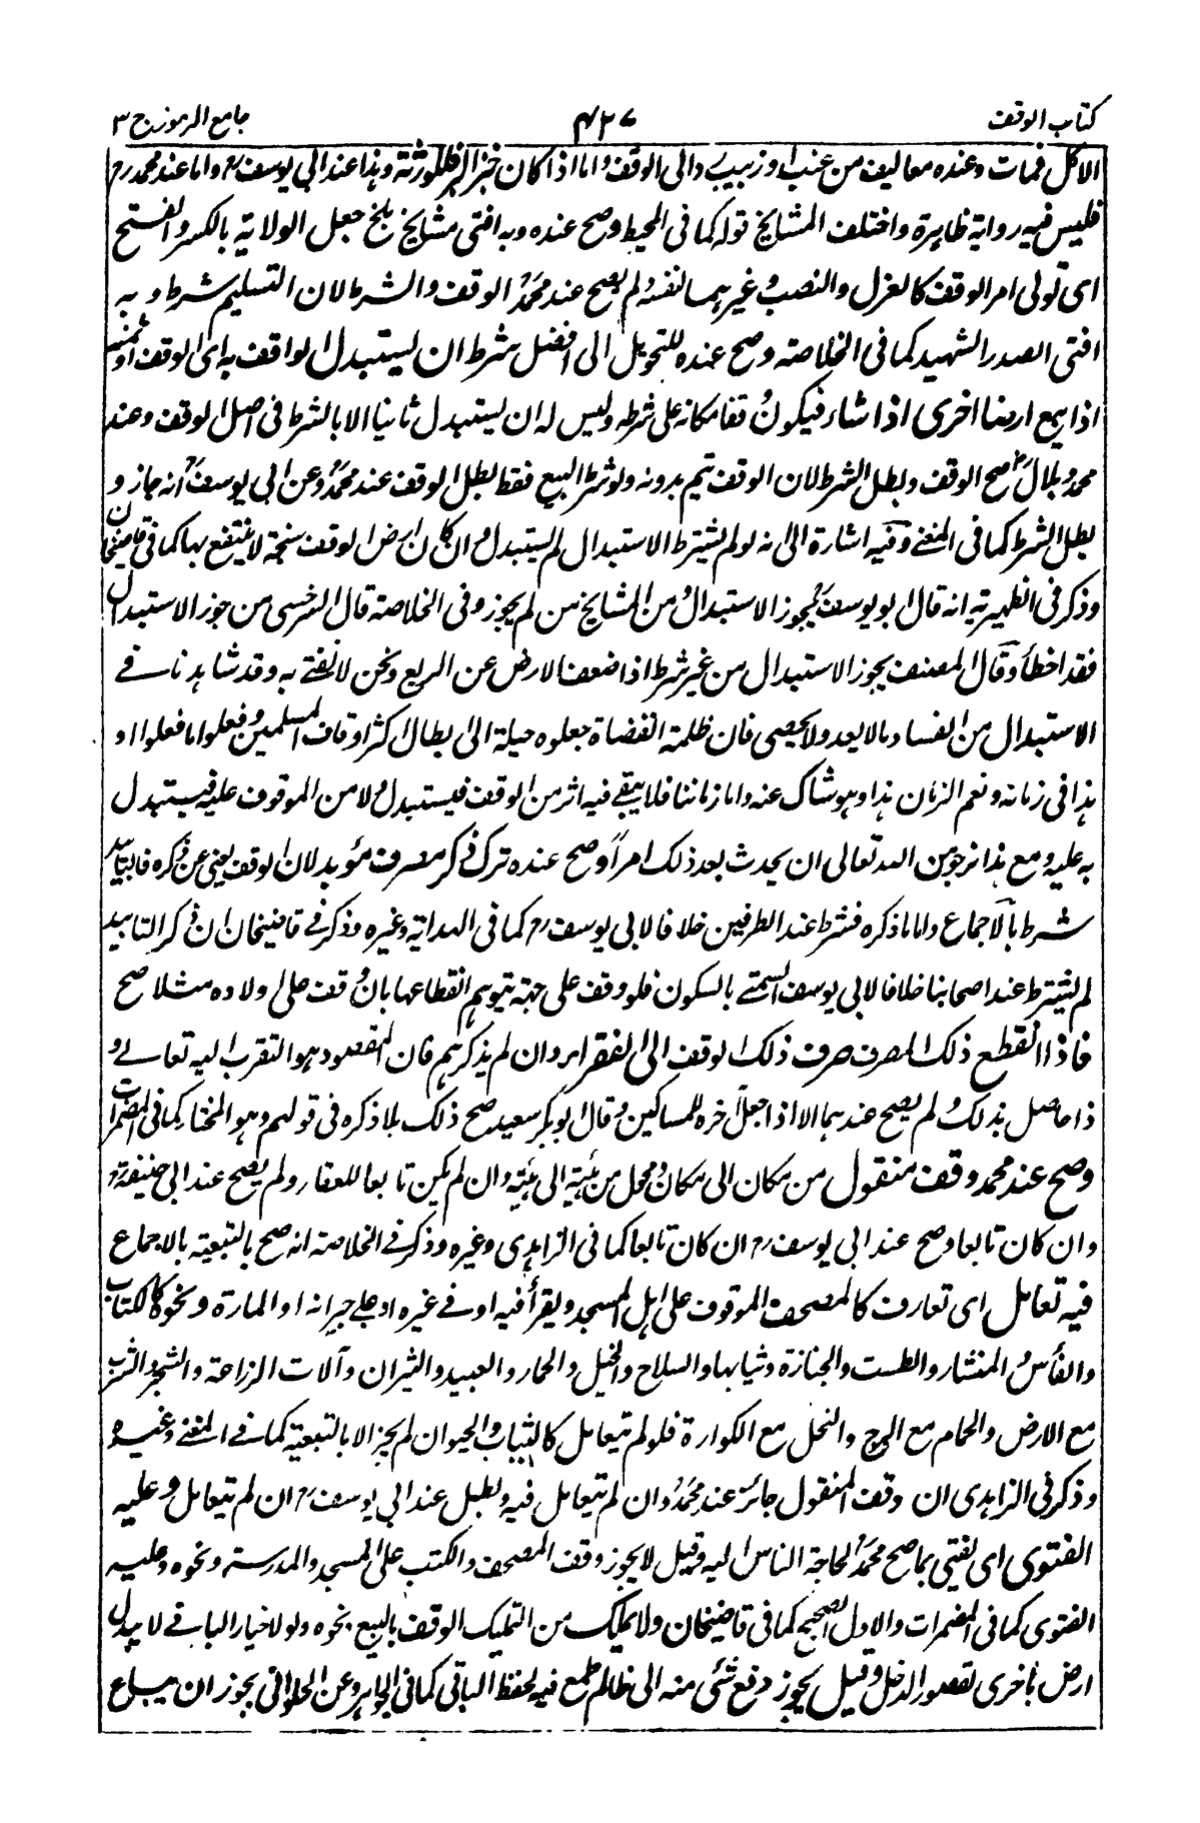 كتاب الوقف ٤٢٧ جامع الرموز ج ٣
الاكل فمات وعنده معاليف من عنب او زبيب رد الى الوقف واما اذا كان خبزا فلورثته وهذا عند ابي يوسف رح واما عند محمد رح
فليس فيه رواية ظاهرة واختلف المشايخ قوله كما في المحيط وصح عنده وبه افتى مشايخ بلخ جعل الولاية بالكسر والفتح
اى تولى امر الوقف كالعزل والنصب وغيرهما لنفسه ولم يصح عند محمد الوقف والشرط لان التسليم شرط و به
افتى الصدر الشهيد كما في الخلاصة وصح عنده للتحويل الى افضل شرط ان يستبدل الواقف به اى الوقف او ثمنه
اذا بيع ارضا اخرى اذا شاء فيكون وقفا مكانه على شرطه وليس له ان يستبدل ثانيا الا بالشرط في اصل الوقف وعند
محمد وهلال صح الوقف وبطل الشرط لان الوقف تيم بدونه ولو شرط البيع فقط بطل الوقف عند محمد وعن ابي يوسف انه جاز و
بطل الشرط كما في المغنے وفيه اشارة الى انه لو لم يشترط الاستبدال لم يستبدل وان كان ارض الوقف سبخة لا ينتفع بها كما في قاضيخان
وذكر في الظهيرية انه قال ابو يوسف يجوز الاستبدال ومن المشايخ من لم يجوز وفي الخلاصة قال السرخسى من جوز الاستبدال
فقد اخطأ وقال المصنف يجوز الاستبدال من غير شرط اذا ضعف الارض عن الريع ونحن لا نفتے به وقد شاهدنا فے
الاستبدال من الفساد ما لا يعد ولا يحصى فان ظلمة القضاة جعلوه حيلة الى ابطال اكثر اوقاف المسلمين وفعلوا ما فعلوا او
هذا في زمانه ونعم الزمان هذا وهو شاك عنه واما زماننا فلا يبقے فيه اثر من الوقف فيستبدل ولا من الموقوف عليه فيستبدل
به عليه ومع هذا نرجو من الله تعالى ان يحدث بعد ذلك امرا وصح عنده ترك ذكر مصرف مؤبد لان الوقف يغنى عن ذكره فالتابيد
شرط بالاجماع واما ذكره فشرط عند الطرفين خلافا لابي يوسف رح كما في الهداية وغيره وذكر فے قاضيخان ان ذكر التابيد
لم يشترط عند اصحابنا خلافا لابي يوسف السمتے بالسكون فلو وقف على جهة يتوهم انقطاعها بان وقف على اولاده مثلا صح
فاذا انقطع ذلك المصرف صرف ذلك الوقف الى الفقراء وان لم يذكرهم فان المقصود هو التقرب اليه تعالے و
ذا حاصل بذلك ولم يصح عندهما الا اذا جعل آخره للمساكين وقال ابو بكر سعيد صح ذلك بلا ذكره فى قولهم وهو المختار كما في المضمرات
وصح عند محمد وقف منقول من مكان الى مكان ومحل من هيئة الى هيئة وان لم يكن تابعا للعقار ولم يصح عند ابي حنيفة رح
وان كان تابعا وصح عند ابي يوسف رح ان كان تابعا كما في الزاهدى وغيره وذكر فے الخلاصة انه صح بالتبعية بالاجماع
فيه تعامل اى تعارف كالمصحف الموقوف على اهل المسجد وليقرأ فيه او فے غيره او علے جيرانه او المارة ونحوه كالكتاب
والفأس والمنشار والطست والجنازة وثيابها والسلاح والخيل والحمار والعبيد والثيران وآلات الزراعة والشجر والشرب
مع الارض والحمام مع البرج والنحل مع الكوارة فلو لم يتعامل كالثياب والحيوان لم يجز الا بالتبعية كما فے المغنے وغيره
وذكر في الزاهدى ان وقف المنقول جائز عند محمد وان لم يتعامل فيه وبطل عند ابي يوسف رح ان لم يتعامل وعليه
الفتوى اى يفتى بما صح محمد لحاجة الناس اليه وقيل لا يجوز وقف المصحف والكتب على المسجد والمدرسة ونحوه وعليه
الفتوى كما فى المضمرات والاول الصحيح كما فى قاضيخان ولا يملك من التمليك الوقف بالبيع ونحوه ولو لاخيار الباقے لا يبدل
ارض باخرى لقصور الدخل وقيل يجوز دفع شئى منه الى ظالم طمع فيه لحفظ الباقى كما في الجواهر وعن الحلوانى يجوز ان يباع